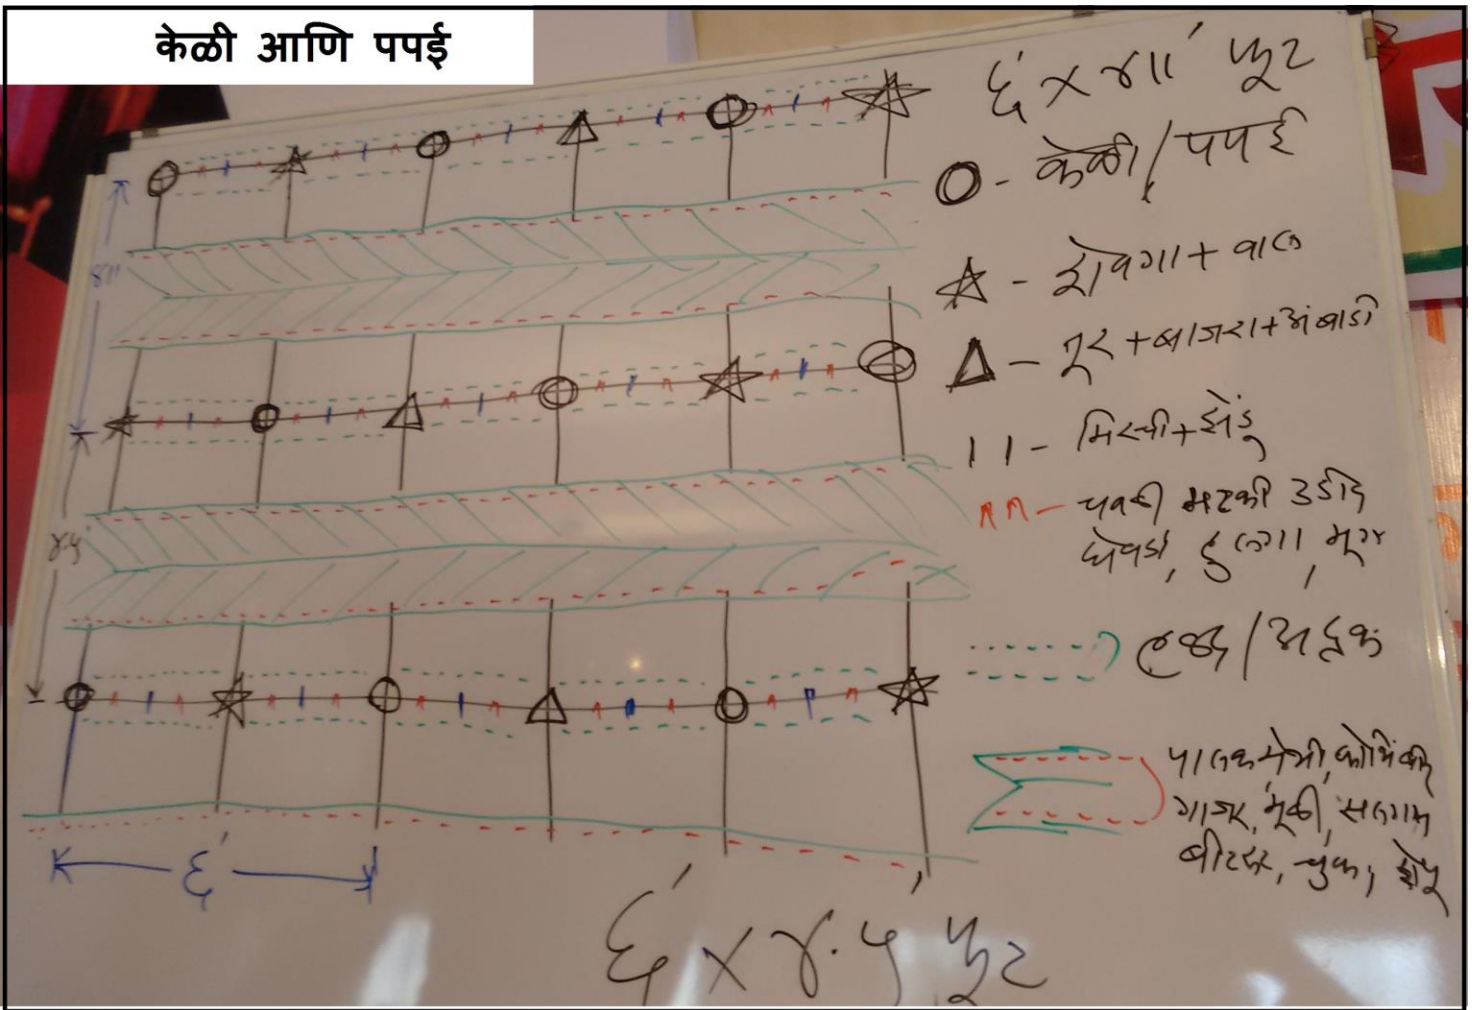 केळी आणि पपई
६' x ४॥' फूट
O - केळी/पपई
☆ - शेवगा + वाल
Δ - तूर + बाजरा + अंबाडी
४॥'
।। - मिरची + झेंडू
^^ - चवळी मटकी उडीद
घेवडा, हुलगा, मूग
४.५'
हळद/अद्रक
पालक मेथी, कोथिंबीर
गाजर, मूळी, सलगम
बीटरूट, चुका, शेपू
६'
६' x ४.५' फूट